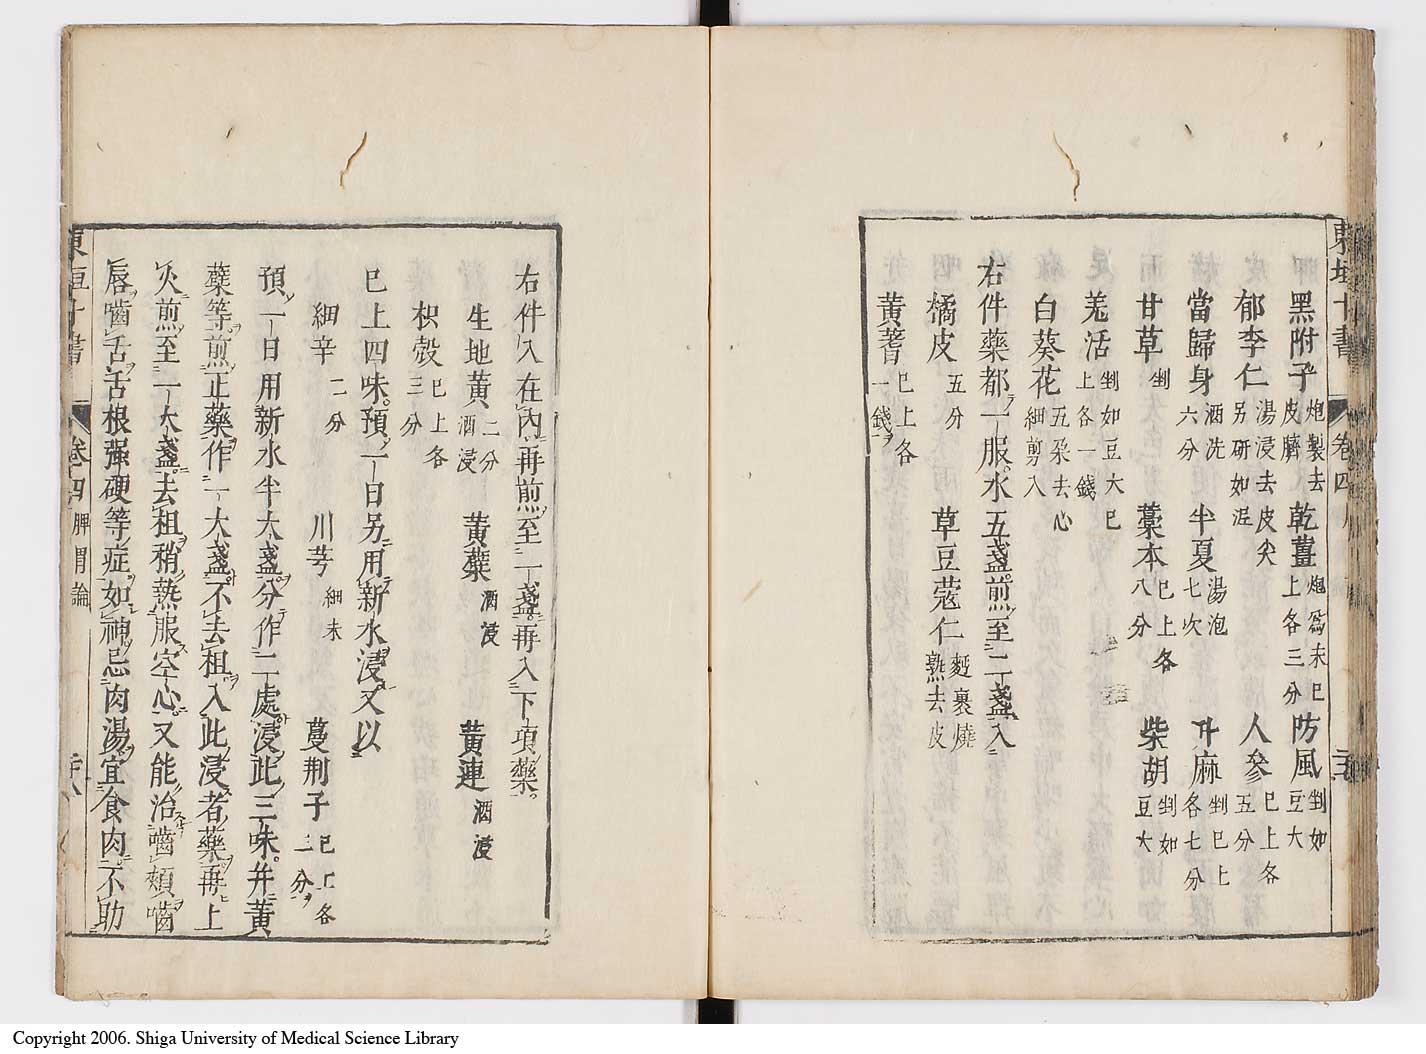 東垣十書 卷四
黑附子炮製去皮臍 乾薑炮爲末已上各三分 防風剉如豆大
郁李仁湯浸去皮尖另研如泥 人參已上各五分
當歸身酒洗六分 半夏湯泡七次 升麻剉已上各七分
甘草剉 藁本已上各八分 柴胡剉如豆大
羗活剉如豆大已上各一錢
白葵花五朵去心細剪入
右件藥都一服水五盞煎至二盞入
橘皮五分 草豆蔻仁麪裹燒熟去皮
黃蓍已上各一錢
右件入在內再煎至一盞再入下項藥
生地黃二分酒浸 黃蘗酒浸 黃連酒浸
枳殼已上各三分
已上四味預一日另用新水浸又以
細辛二分 川芎細末 蔓荆子已上各三分
預一日用新水半大盞分作二處浸此三味并黃
蘗等煎正藥作一大盞不去柤入此浸者藥再上
火煎至一大盞去柤稍熱服空心又能治嚙頰嚙
唇嚙舌舌根强硬等症如神忌肉湯宜食肉不助
東垣十書 卷四 脾胃論 二十八
Copyright 2006. Shiga University of Medical Science Library